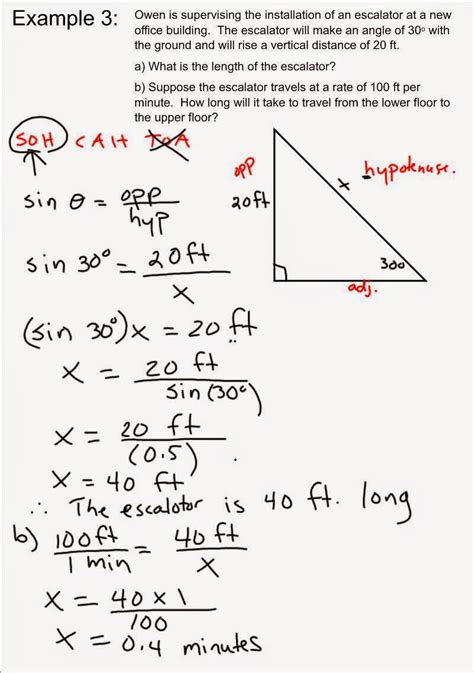 Example 3: Owen is supervising the installation of an escalator at a new
office building. The escalator will make an angle of 30° with
the ground and will rise a vertical distance of 20 ft.
a) What is the length of the escalator?
b) Suppose the escalator travels at a rate of 100 ft per
minute. How long will it take to travel from the lower floor to
the upper floor?
SOH CAH TOA
opp
hypoknuse.
x
20ft
30°
adj.
sin θ = opp/hyp
sin 30° = 20ft/x
(sin 30°)x = 20 ft
x = 20 ft/sin(30°)
x = 20 ft/(0.5)
x = 40 ft
∴ The escalator is 40 ft. long
b) 100ft/1 min = 40 ft/x
x = 40 x 1/100
x = 0.4 minutes